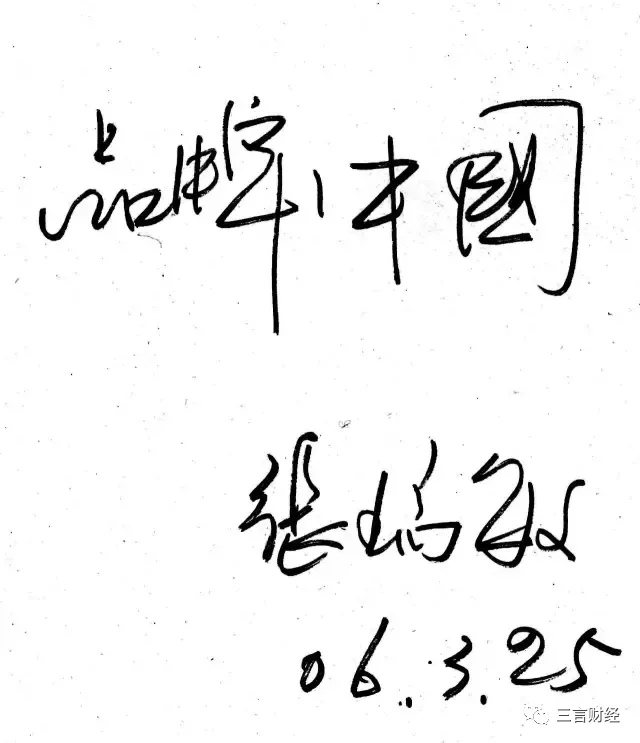 品牌中國
张瑞敏
06.3.25
三言财经